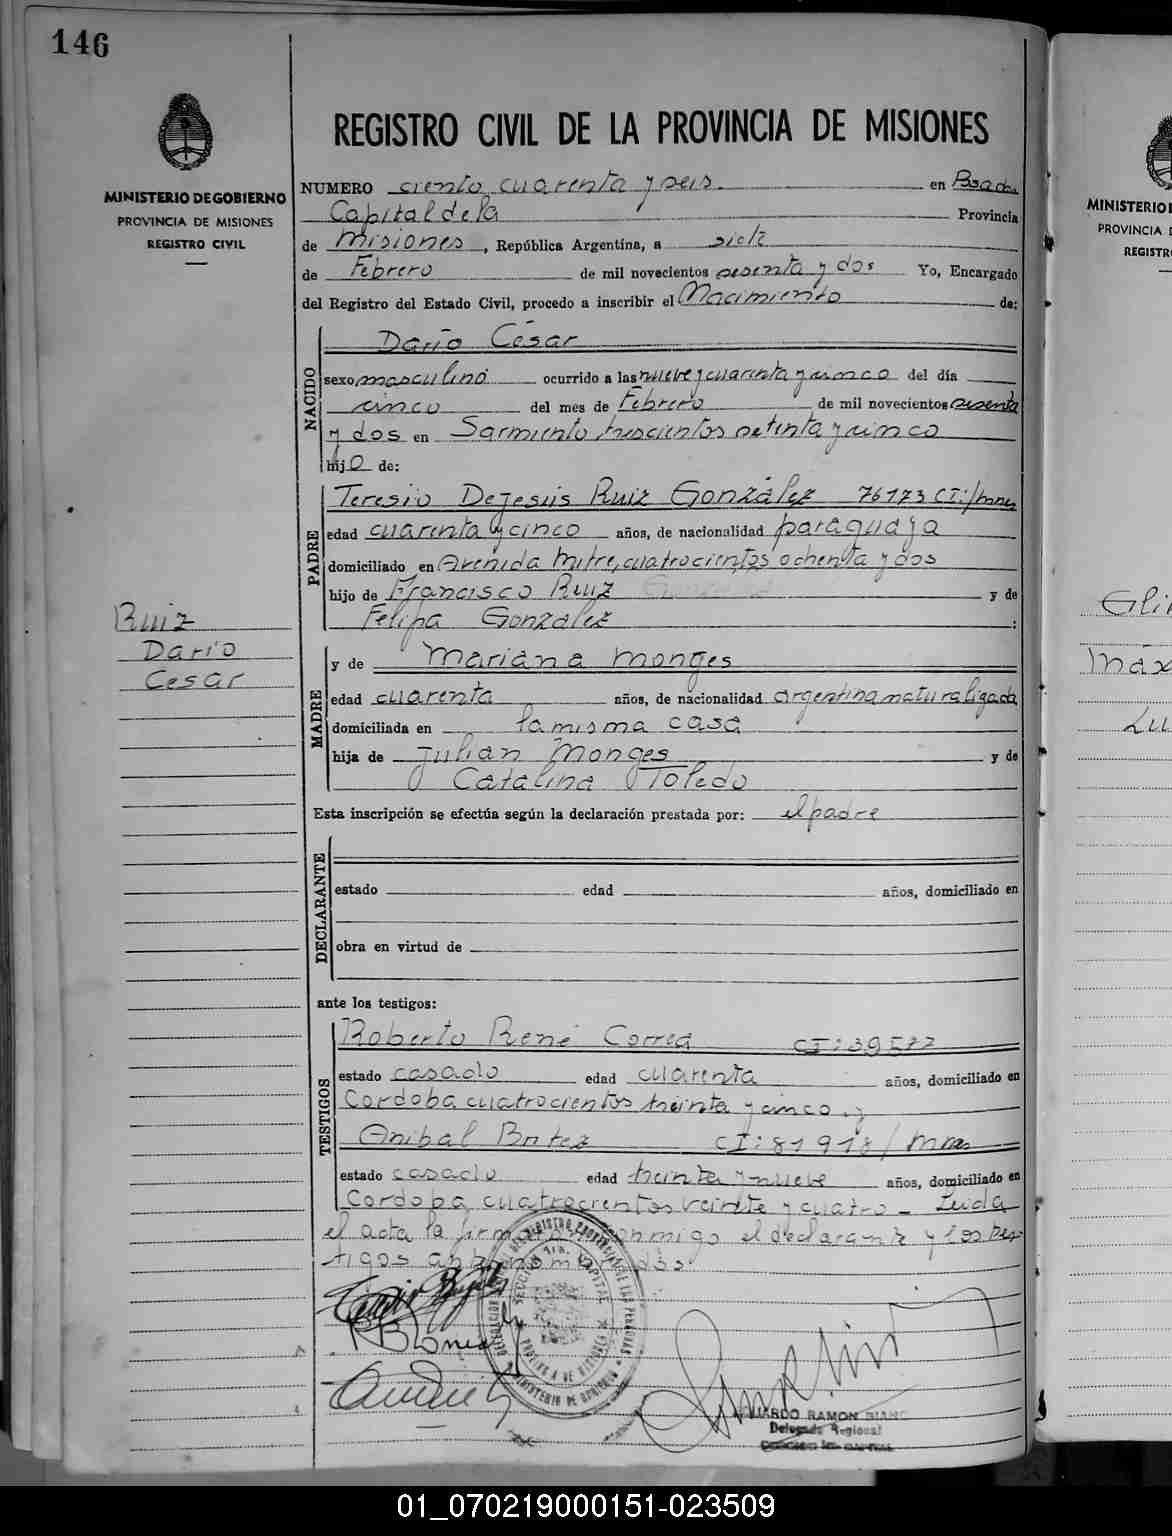 146
MINISTERIO DE GOBIERNO
PROVINCIA DE MISIONES
REGISTRO CIVIL
Ruiz
Darío
Cesar
REGISTRO CIVIL DE LA PROVINCIA DE MISIONES
NUMERO ciento cuarenta y seis en Psadas
Capital de la Provincia
de Misiones, República Argentina, a siete
de Febrero de mil novecientos sesenta y dos Yo, Encargado
del Registro del Estado Civil, procedo a inscribir el Nacimiento de:
NACIDO
Darío César
sexo masculino ocurrido a las nueve y cuarenta y cinco del día
cinco del mes de Febrero de mil novecientos sesenta
y dos en Sarmiento trescientos setenta y cinco
hijo de:
PADRE
Teresio Dejesús Ruiz González 76173 CI:/mnes
edad cuarenta y cinco años, de nacionalidad paraguaya
domiciliado en Avenida Mitre, cuatrocientos ochenta y dos
hijo de Francisco Ruiz y de
Felipa González :
MADRE
y de Mariana Monges
edad cuarenta años, de nacionalidad argentina naturalizada
domiciliada en la misma casa
hija de Julian Monges y de
Catalina Toledo
Esta inscripción se efectúa según la declaración prestada por: el padre
DECLARANTE
estado edad años, domiciliado en
obra en virtud de
ante los testigos:
TESTIGOS
Roberto René Correa CI:39577
estado casado edad cuarenta años, domiciliado en
Cordoba cuatrocientos treinta y cinco. y
Anibal Britez CI:81918/mnes
estado casado edad treinta y nueve años, domiciliado en
Cordoba, cuatrocientos veinte y cuatro - Leida
el acta la firman conmigo el declarante y los tes-
tigos
RAMON
Delegado Regional
MINISTERIO
PROVINCIA D
REGISTR
01_070219000151-023509